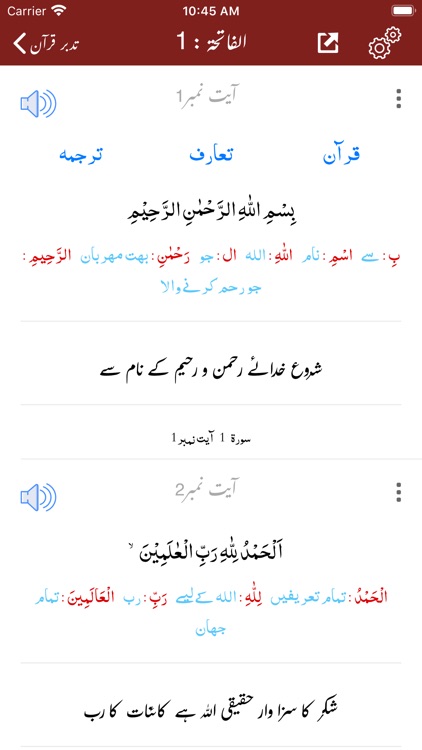 Carrier 10:45 AM
تدبر قرآن الفاتحة : 1
آیت نمبر1
قرآن تعارف ترجمہ
بِسْمِ اللّٰهِ الرَّحْمٰنِ الرَّحِيْمِ
بِ: سے اسْمِ: نام اللّٰهِ: اللہ ال: جو رَحْمٰنِ: بہت مہربان الرَّحِيمِ:
جو رحم کرنے والا
شروع خدائے رحمٰن و رحیم کے نام سے
سورۃ 1 آیت نمبر1
آیت نمبر2
اَلْحَمْدُ لِلّٰهِ رَبِّ الْعٰلَمِيْنَ ۙ
الْحَمْدُ: تمام تعریفیں لِلّٰهِ: اللہ کے لیے رَبِّ: رب الْعَالَمِينَ: تمام
جہان
شکر کا سزا وار حقیقی اللہ ہے کائنات کا رب